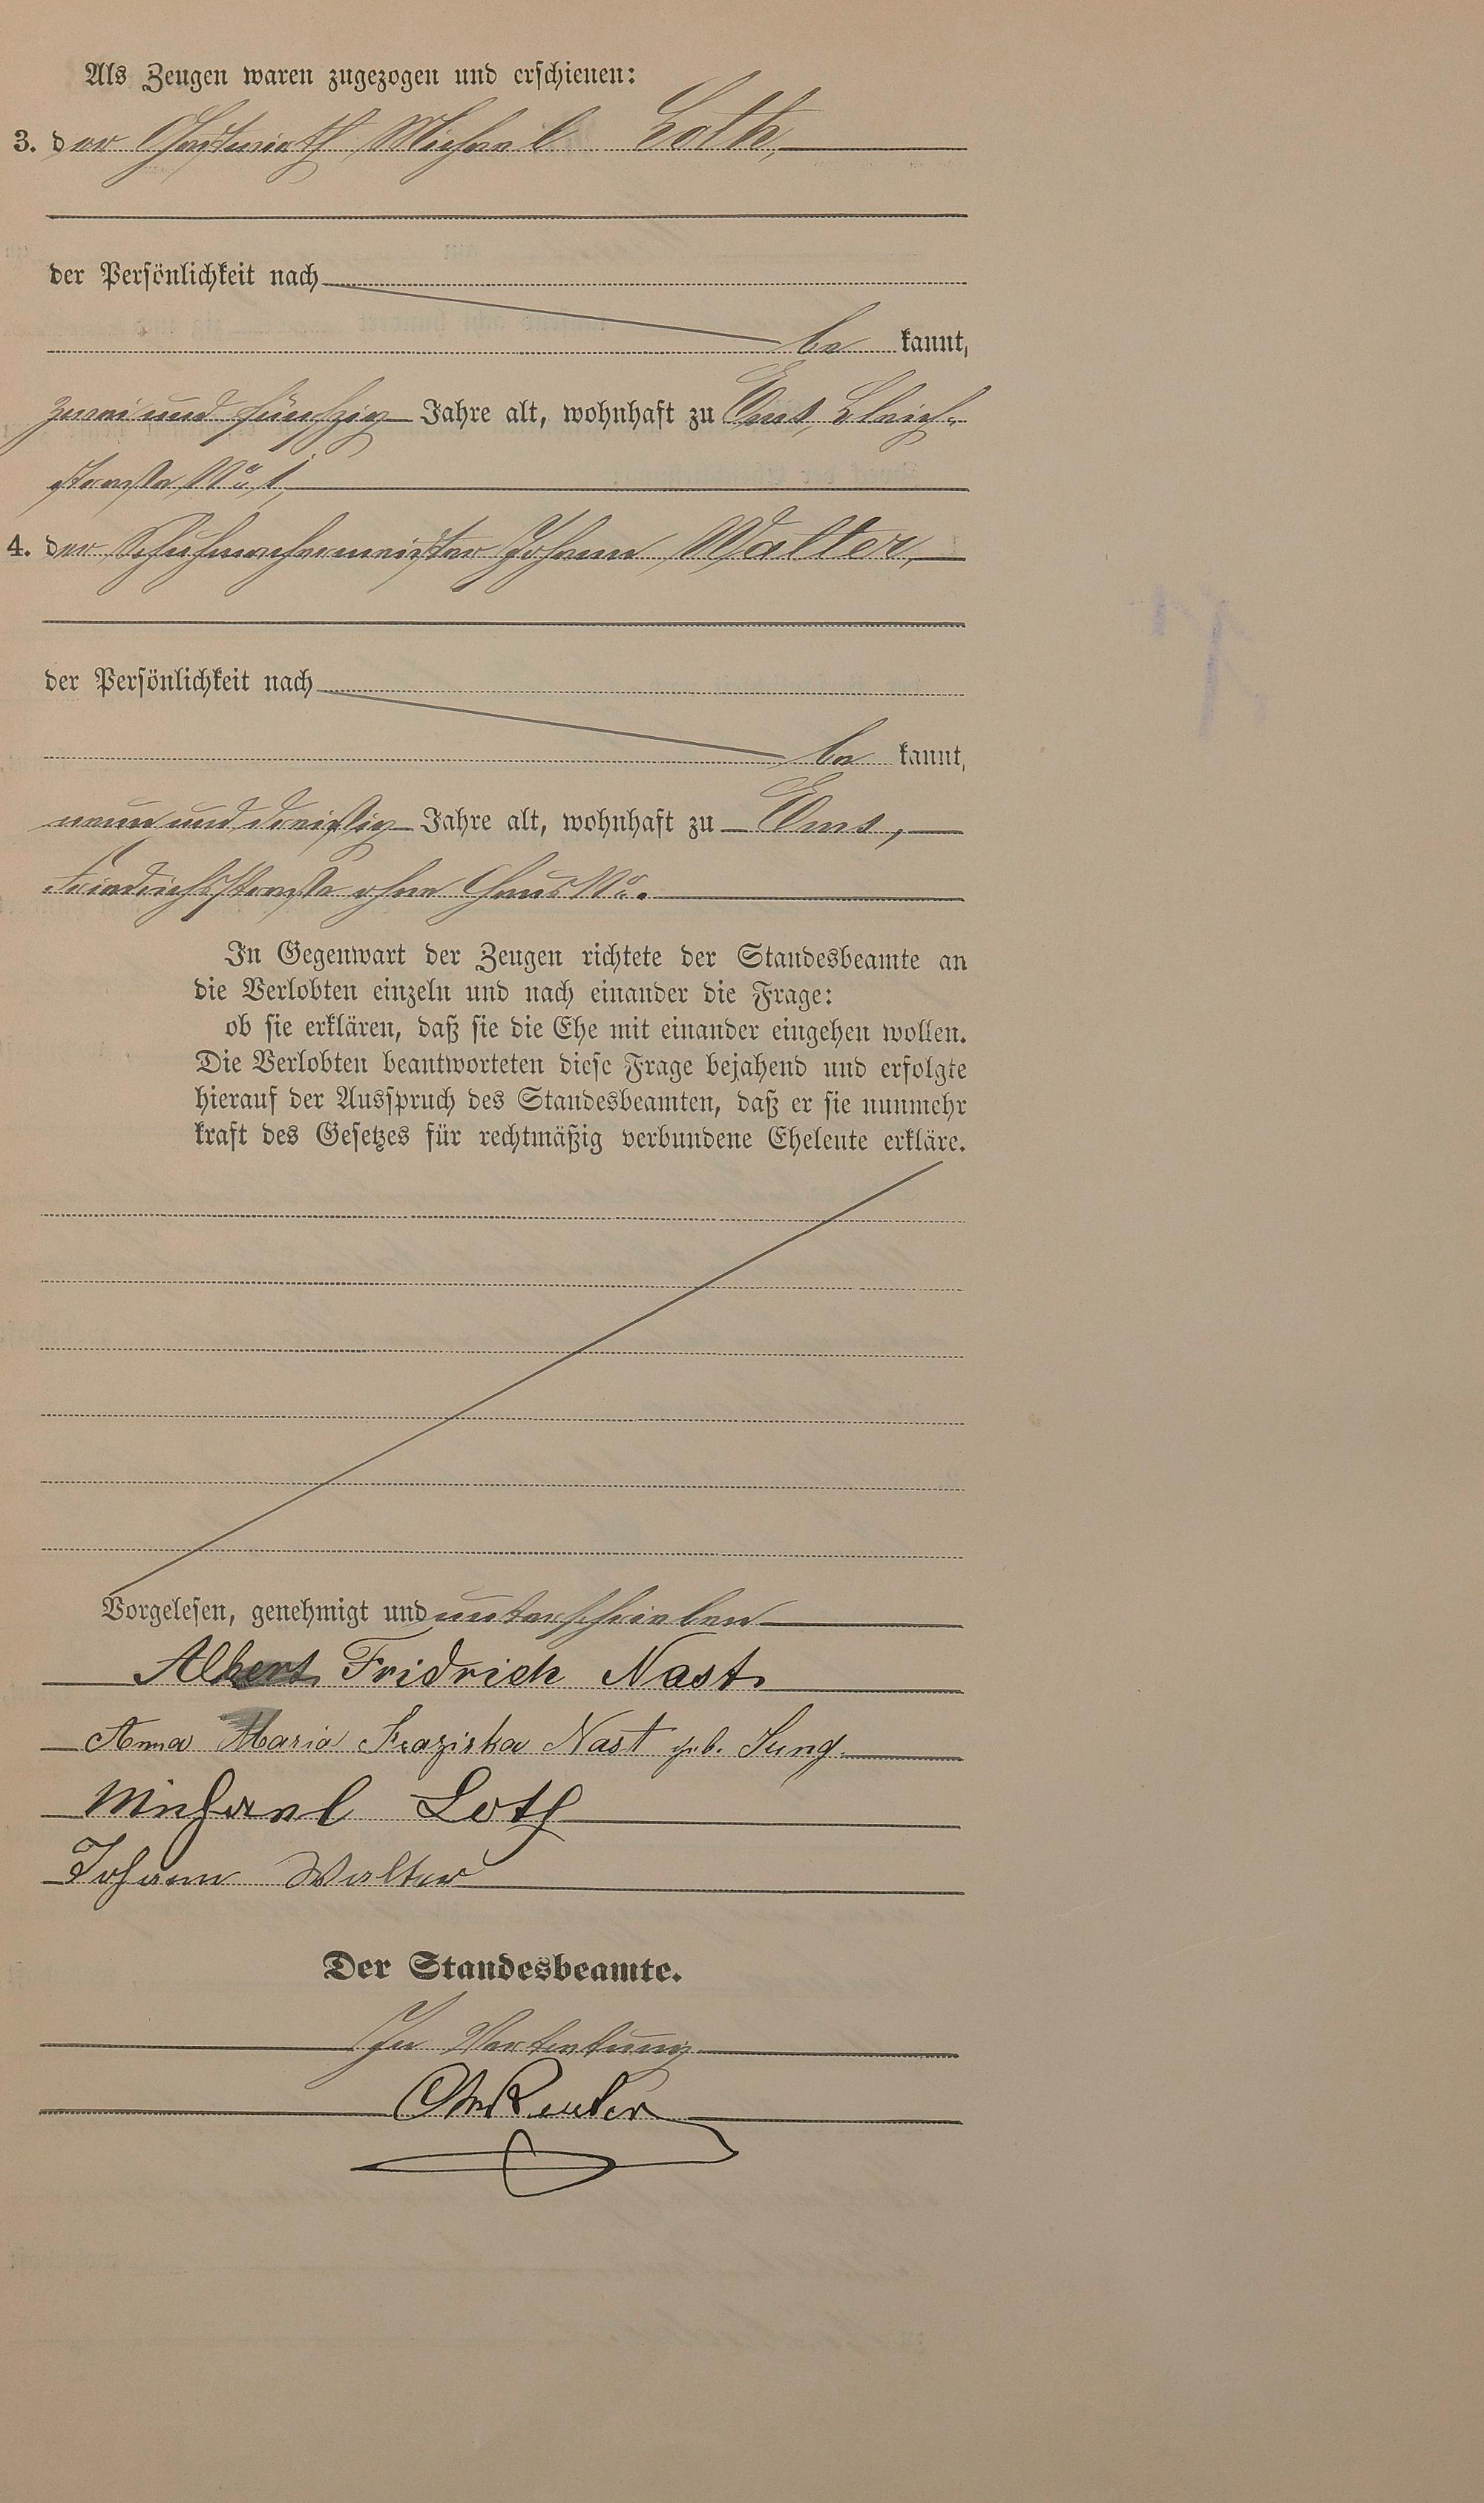 Als Zeugen waren zugezogen und erschienen:
3. der Gastwirth Michael Loth,
der Persönlichkeit nach
be kannt,
zwei und fünfzig Jahre alt, wohnhaft zu Ems, Bleich-
straße No. 1,
4. der Schuhmachermeister Johann Walter,
der Persönlichkeit nach
be kannt,
neun und dreißig Jahre alt, wohnhaft zu Ems,
Friedrichsstraße ohne Haus No.
In Gegenwart der Zeugen richtete der Standesbeamte an
die Verlobten einzeln und nach einander die Frage:
ob sie erklären, daß sie die Ehe mit einander eingehen wollen.
Die Verlobten beantworteten diese Frage bejahend und erfolgte
hierauf der Ausspruch des Standesbeamten, daß er sie nunmehr
kraft des Gesetzes für rechtmäßig verbundene Eheleute erkläre.
Vorgelesen, genehmigt und unterschrieben
Albert Fridrich Nast.
Anna Maria Fraziska Nast geb. Jung.
Michael Loth
Johann Walter
Der Standesbeamte.
In Vertretung
Reuter